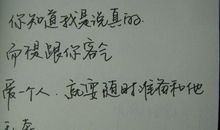 你知道我是说真的
而没跟你客气
爱一个人，就要随时准备和他